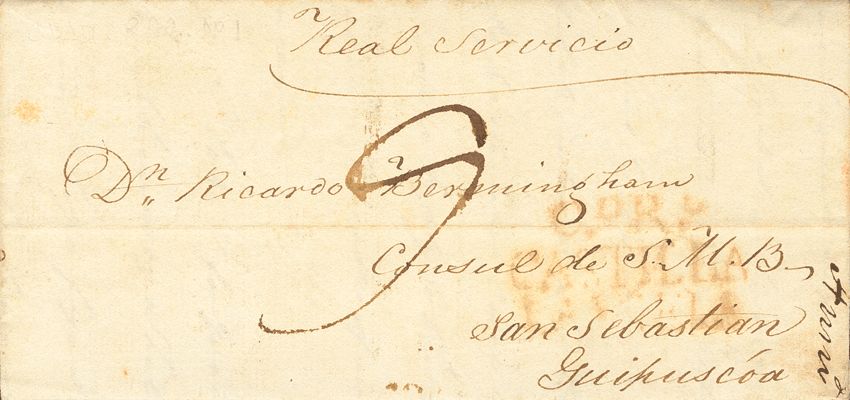 Real Servicio
9
Dn Ricardo Bermingham
Consul de S. M. B.
San Sebastian
Guipuscóa
CASTILLA